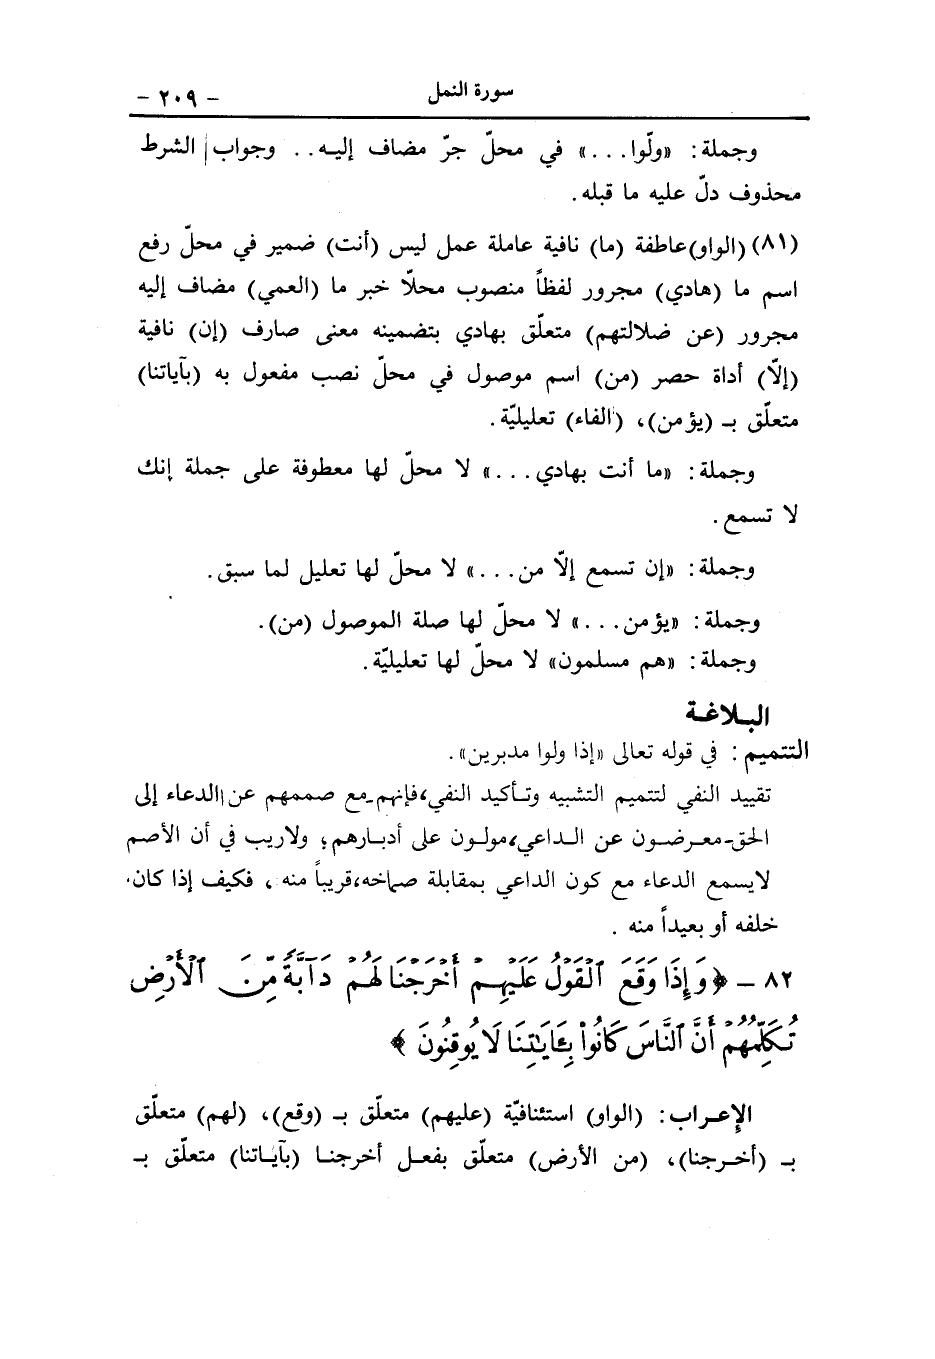 سورة النمل - ٢٠٩ -
وجملة: «ولّوا...» في محلّ جرّ مضاف إليه.. وجواب الشرط
محذوف دلّ عليه ما قبله.
(٨١) (الواو)عاطفة (ما) نافية عاملة عمل ليس (أنت) ضمير في محلّ رفع
اسم ما (هادي) مجرور لفظاً منصوب محلّا خبر ما (العمي) مضاف إليه
مجرور (عن ضلالتهم) متعلّق بهادي بتضمينه معنى صارف (إن) نافية
(إلّا) أداة حصر (من) اسم موصول في محلّ نصب مفعول به (بآياتنا)
متعلّق بـ (يؤمن)، (الفاء) تعليليّة.
وجملة: «ما أنت بهادي...» لا محلّ لها معطوفة على جملة إنك
لا تسمع.
وجملة: «إن تسمع إلّا من...» لا محلّ لها تعليل لما سبق.
وجملة: «يؤمن...» لا محلّ لها صلة الموصول (من).
وجملة: «هم مسلمون» لا محلّ لها تعليليّة.
البلاغة
التتميم: في قوله تعالى «إذا ولوا مدبرين».
تقييد النفي لتتميم التشبيه وتأكيد النفي، فإنهم-مع صممهم عن الدعاء إلى
الحق-معرضون عن الداعي، مولون على أدبارهم؛ ولاريب في أن الأصم
لايسمع الدعاء مع كون الداعي بمقابلة صماخه، قريباً منه، فكيف إذا كان
خلفه أو بعيداً منه.
٨٢ - ﴿وَإِذَا وَقَعَ ٱلْقَوْلُ عَلَيْهِمْ أَخْرَجْنَا لَهُمْ دَآبَّةً مِّنَ ٱلْأَرْضِ
تُكَلِّمُهُمْ أَنَّ ٱلنَّاسَ كَانُواْ بِـَٔايَـٰتِنَا لَا يُوقِنُونَ﴾
الإعراب: (الواو) استئنافيّة (عليهم) متعلّق بـ (وقع)، (لهم) متعلّق
بـ (أخرجنا)، (من الأرض) متعلّق بفعل أخرجنا (بآياتنا) متعلّق بـ